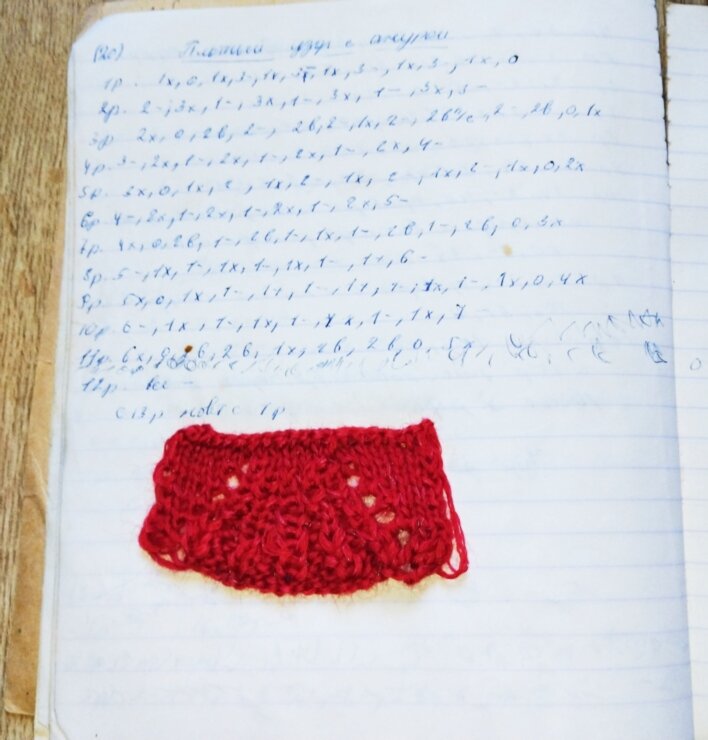 (20) Плотный узор с ажуром
1р. 1х, 0, 1х, 3-, 1х, 3-, 1х, 3-, 1х, 3-, 1х, 0
2р. 2-, 3х, 1-, 3х, 1-, 3х, 1-, 3х, 3-
3р. 2х, 0, 2в, 2-, 2в, 2-, 1х, 2-, 2в, 2-, 2в, 0, 1х
4р. 3-, 2х, 1-, 2х, 1-, 2х, 1-, 2х, 4-
5р. 3х, 0, 1х, 2-, 1х, 2-, 1х, 2-, 1х, 2-, 1х, 0, 2х
6р. 4-, 2х, 1-, 2х, 1-, 2х, 1-, 2х, 5-
7р. 4х, 0, 2в, 1-, 2в, 1-, 1х, 1-, 2в, 1-, 2в, 0, 3х
8р. 5-, 1х, 1-, 1х, 1-, 1х, 1-, 1х, 6-
9р. 5х, 0, 1х, 1-, 1х, 1-, 1х, 1-, 1х, 1-, 1х, 0, 4х
10р. 6-, 1х, 1-, 1х, 1-, 1х, 1-, 1х, 7
11р. 6х, 0, 2в, 2в, 1х, 2в, 2в, 0, 5х
12р. все -
с 13р. повт с 1р.